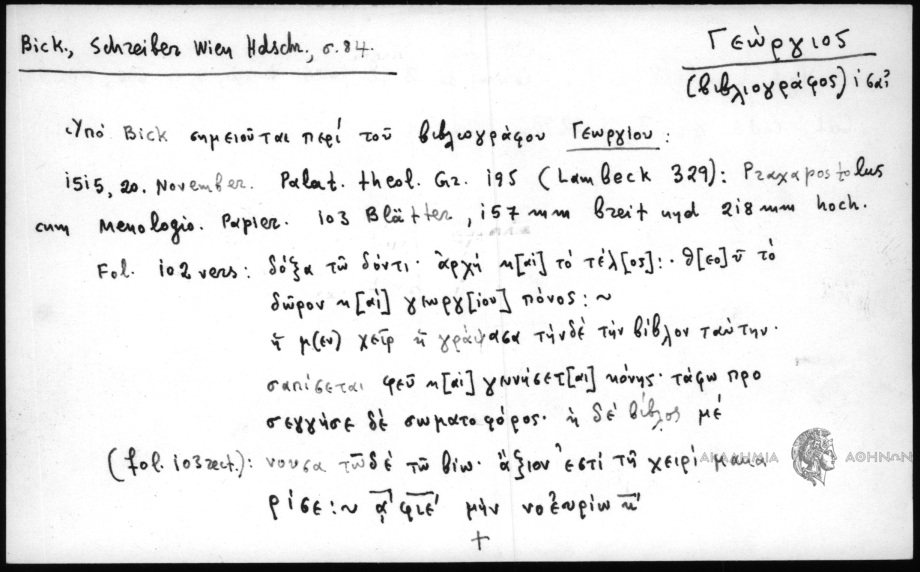 Bick., Schreiber Wien Hdschr., σ. 84.
Γεώργιος
(βιβλιογράφος) ισαʹ
Ὑπό Bick σημειοῦται περί τοῦ βιβλιογράφου Γεωργίου:
1515, 20. November. Palat. theol. Gr. 195 (Lambeck 329): Praxapostolus
cum Menologio. Papier. 103 Blätter, 157 mm breit und 218 mm hoch.
Fol. 102 vers: δόξα τῶ δόντι· ἀρχή κ[αί] τό τέλ[ος]:· θ[εο]ῦ τό
δῶρον κ[αί] γεωργ[ίου] πόνος:~
ἥ μ(εν) χεῖρ ἥ γράψασα τήνδέ τήν βίβλον ταύτην·
σαπίσεται φεῦ κ[αί] γεννήσετ[αι] κόνης· τάφω προ
σεγγήσε δέ σωματοφόρος· ἡ δέ βίβλος μέ
(fol. 103 rect.): νουσα τῶδέ τῶ βίω· ἄξιον ἐστί τῆ χειρί μακα
ρίσε:~ ͵αʹ φιεʹ μήν νοἐυρίω κʹ
+
ΑΚΑΔΗΜΙΑ ΑΘΗΝΩΝ